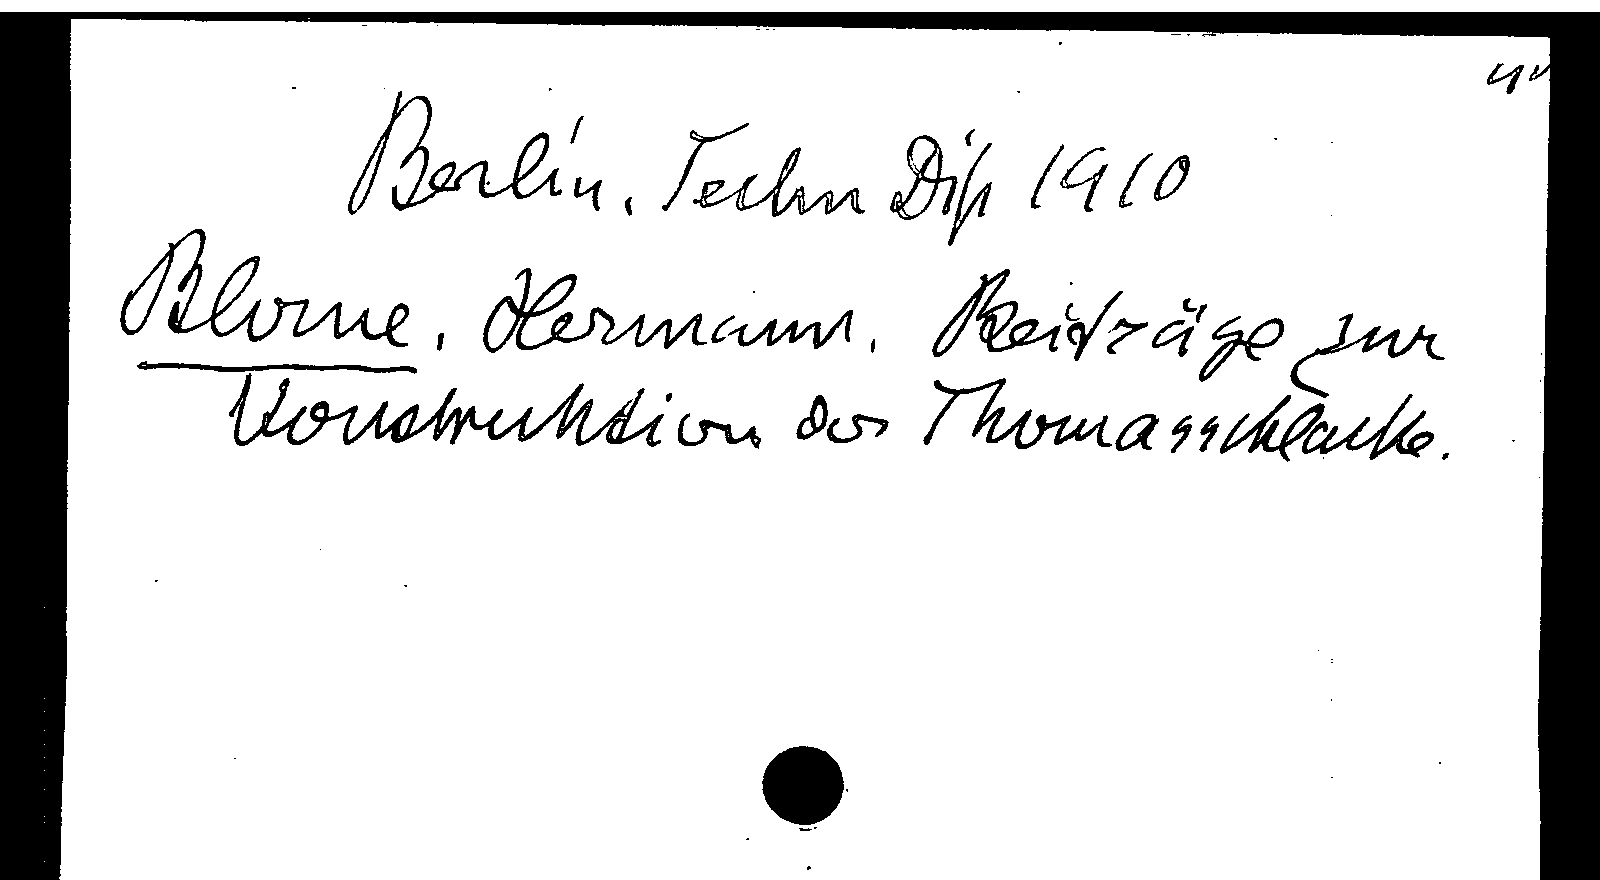 Berlin, Techn Diss 1910
Blome, Hermann. Beiträge zur
Konstruktion der Thomasschlacke.